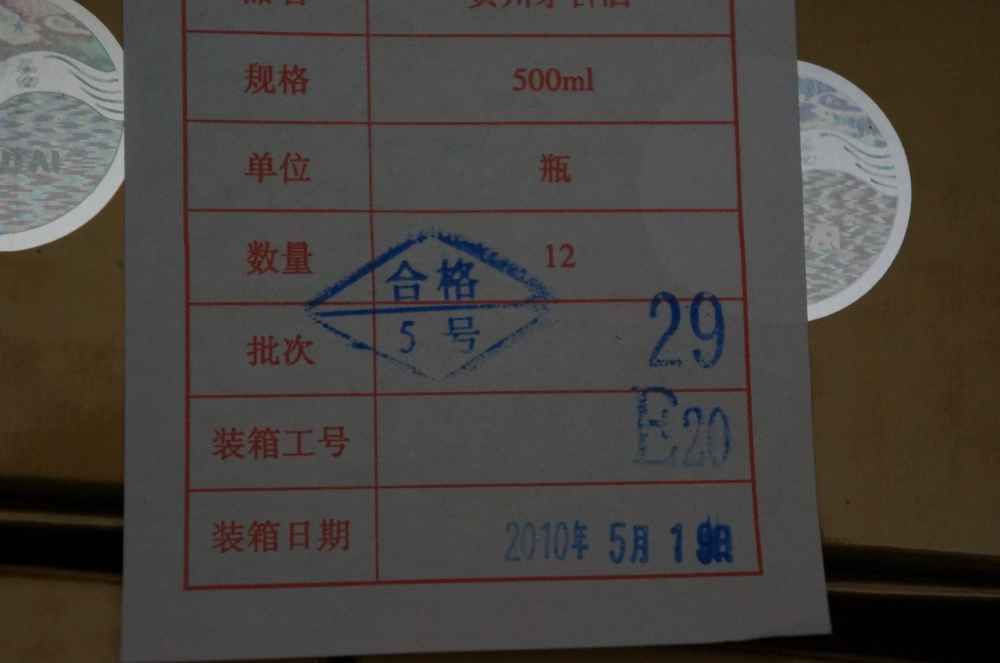 规格 500ml
单位 瓶
数量 12
合格
5号
批次 29
装箱工号 E20
装箱日期 2010年 5月 19日